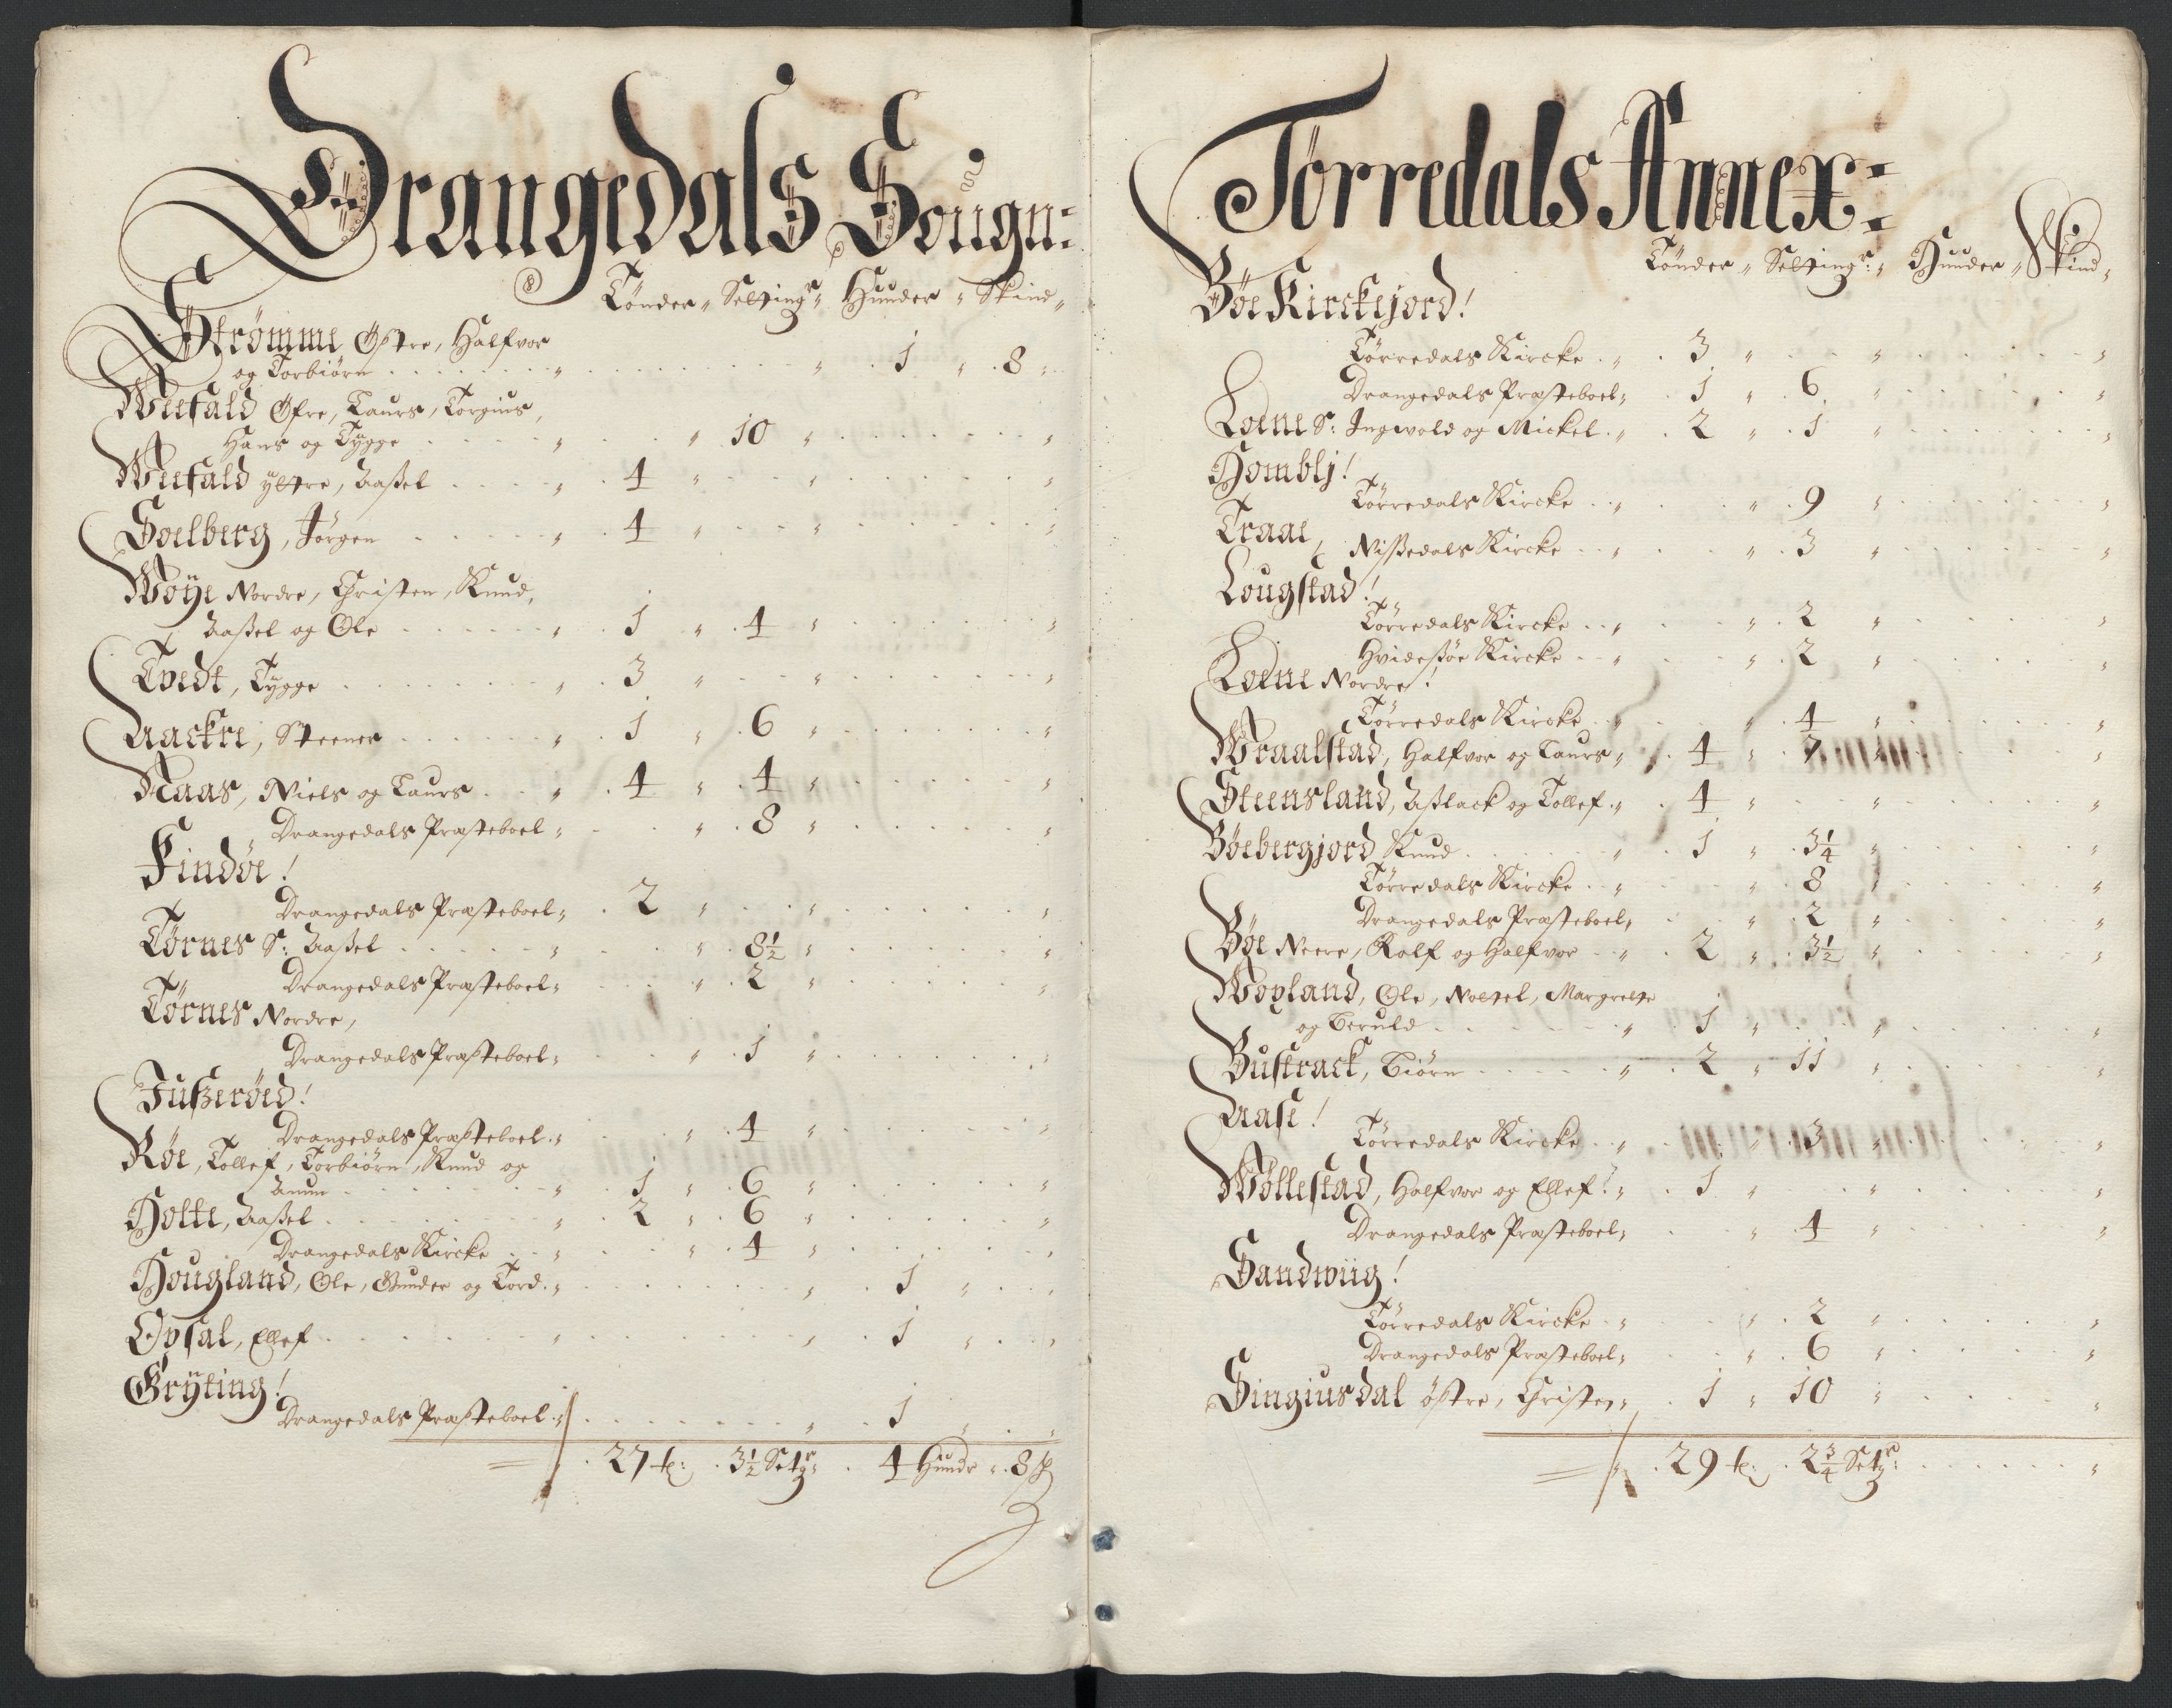 Drangedals Sougn:
Tönder, Setting^r, Huuder, Skind,
Strömme Östre, Halfvor
og Torbiörn . . . . 1 . 8
Weefald Öfre, Laurs, Torgius,
Hans og Tygge . . . . 10
Weefald yttre, Aaßel . . . . 4
Soelberg, Jörgen . . . . 4
Woÿe Nordre, Christen, Knud,
Aaßel og Ole . . . . 1 . 4
Tvedt, Tygge . . . . 3
Aackre, Steener . . . . 1 . 6
Aaas, Niels og Laurs . . . 4 . 4
Drangedals Præsteboel . . . 8
Findöe!
Drangedals Præsteboel . 2
Törnes S: Aaßel . . . . 8½
Drangedals Præsteboel . . . 2
Törnes Nordre,
Drangedals Præsteboel . . . 1
Jußeröed!
Drangedals Præsteboel . . . 4
Röe, Tollef, Torbiörn, Knud og
. . . . 1 . 6
Holte, Aaßel . . . . 2 . 6
Drangedals Kircke . . . 4
Hougland, Ole, Gunder og Tord . . . 1
Opsal, Ellef . . . . 1
Grÿting!
Drangedals Præsteboel . . . 1
27 t: 3½ Set^r: 4 Hundr . 8 sk

Törredals Annex:
Tönder, Setting^r:, Huuder, Skind,
Böe Kirckejord!
Törredals Kircke . . 3
Drangedals Præsteboel . 1 . 6
Loene S: Ingwold og Mickel . 2 . 1
Homblj!
Törredals Kircke . . . 9
Traae,
Nißedals Kircke . . . 3
Lougstad!
Törredals Kircke . . . 2
Hvideßöe Kircke . . . 2
Loene Nordre!
Törredals Kircke . . . 4
Wraalstad, Halfvor og Laurs . 4 . 7
Steensland, Aßlack og Tollef . 4
Böebergjord Knud . . . 1 . 3¼
Törredals Kircke . . . 8
Drangedals Præsteboel . . . 2
Böe Neere, Rolf og Halfvor . . 2 . 3½
Wopland, Ole, Nottel, Margrette
og Beruld . . . . 1
Bustrack, Biörn . . . . 2 . 11
Aase!
Törredals Kircke . . . 3
Wöllestad, Halfvor og Ellef . . 1
Drangedals Præsteboel . . . 4
Sandwiig!
Törredals Kircke . . . 2
Drangedals Præsteboel . . . 6
Singiusdal östre, Christen . 1 . 10
29 t: 2¾ Set^r: